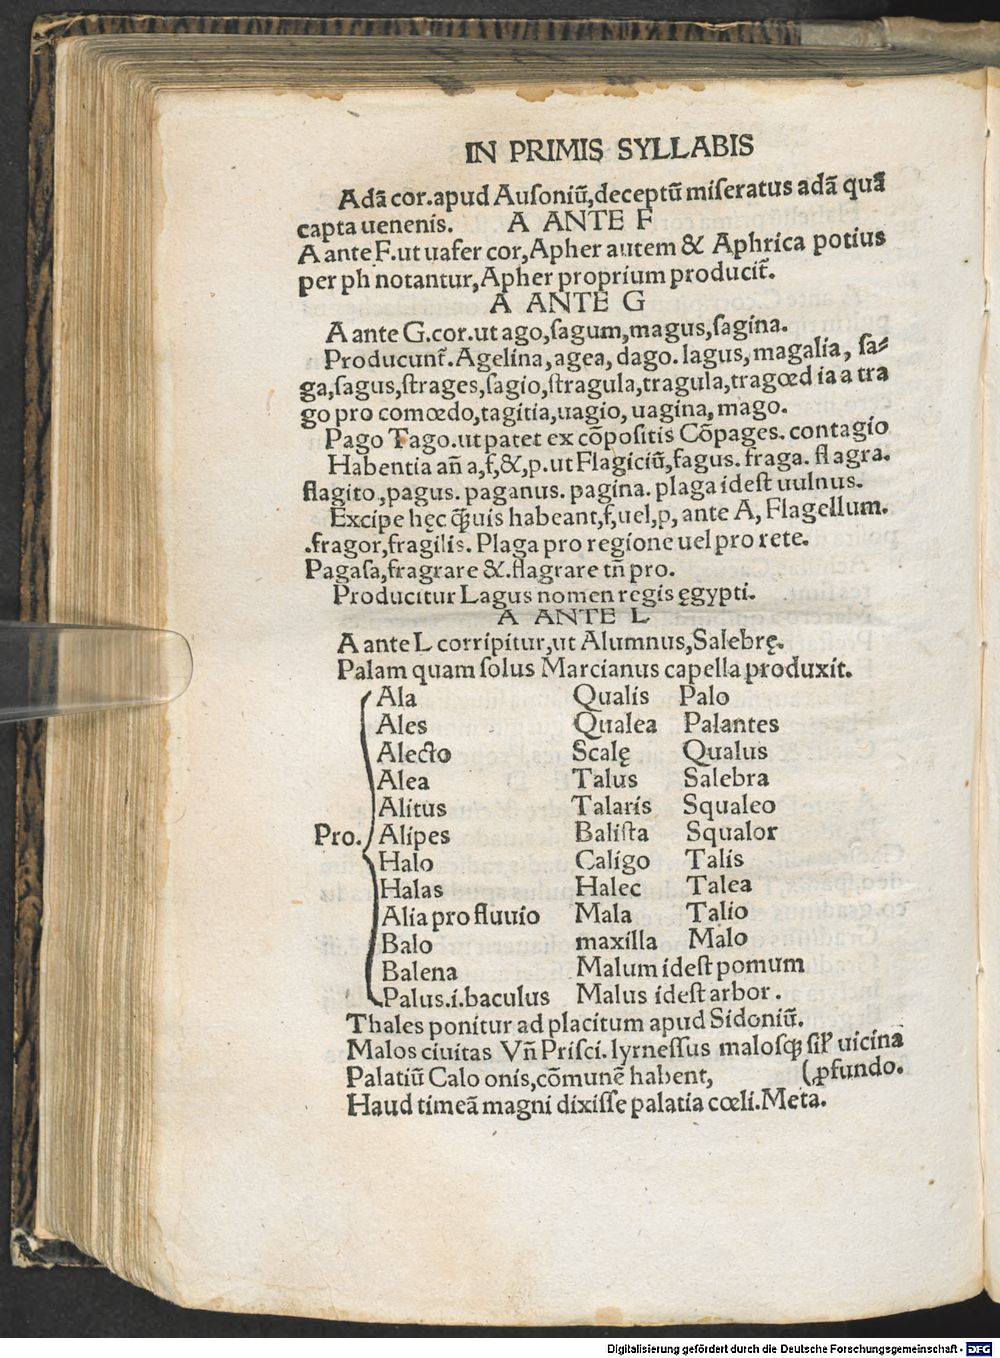 IN PRIMIS SYLLABIS
Adā cor.apud Auſoniū,deceptū miſeratus adā quā
capta uenenis. A ANTE F
A ante F.ut uafer cor,Apher autem & Aphrica potius
per ph notantur,Apher proprium producit̃.
A ANTE G
A ante G.cor.ut ago,ſagum,magus,ſagina.
Producunt̃.Agelina,agea,dago.lagus,magalia,ſa⸗
ga,ſagus,ſtrages,ſagio,ſtragula,tragula,tragœd ia a tra
go pro comœdo,tagitia,uagio,uagina,mago.
Pago Tago.ut patet ex cōpoſitis Cōpages.contagio
Habentia añ a,f,&,p.ut Flagiciū,fagus.fraga.flagra.
flagito,pagus.paganus.pagina.plaga ideſt uulnus.
Excipe hęc ꝙ̃uis habeant,f,uel,p,ante A,Flagellum.
.fragor,fragilis.Plaga pro regione uel pro rete.
Pagaſa,fragrare &.flagrare tñ pro.
Producitur Lagus nomen regis ęgypti.
A ANTE L
A ante L corripitur,ut Alumnus,Salebrę.
Palam quam ſolus Marcianus capella produxit.
Ala Qualis Palo
Ales Qualea Palantes
Alecto Scalę Qualus
Alea Talus Salebra
Alitus Talaris Squaleo
Pro. Alipes Baliſta Squalor
Halo Caligo Talis
Halas Halec Talea
Alia pro fluuio Mala Talio
Balo maxilla Malo
Balena Malum ideſt pomum
Palus.i.baculus Malus ideſt arbor.
Thales ponitur ad placitum apud Sidoniū.
Malos ciuitas Vñ Priſci.lyrneſſus maloſqꝫ ſil̃ uicina
Palatiū Calo onis,cōmunē habent, (ꝓfundo.
Haud timeā magni dixiſſe palatia cœli.Meta.
Digitalisierung gefördert durch die Deutsche Forschungsgemeinschaft - DFG